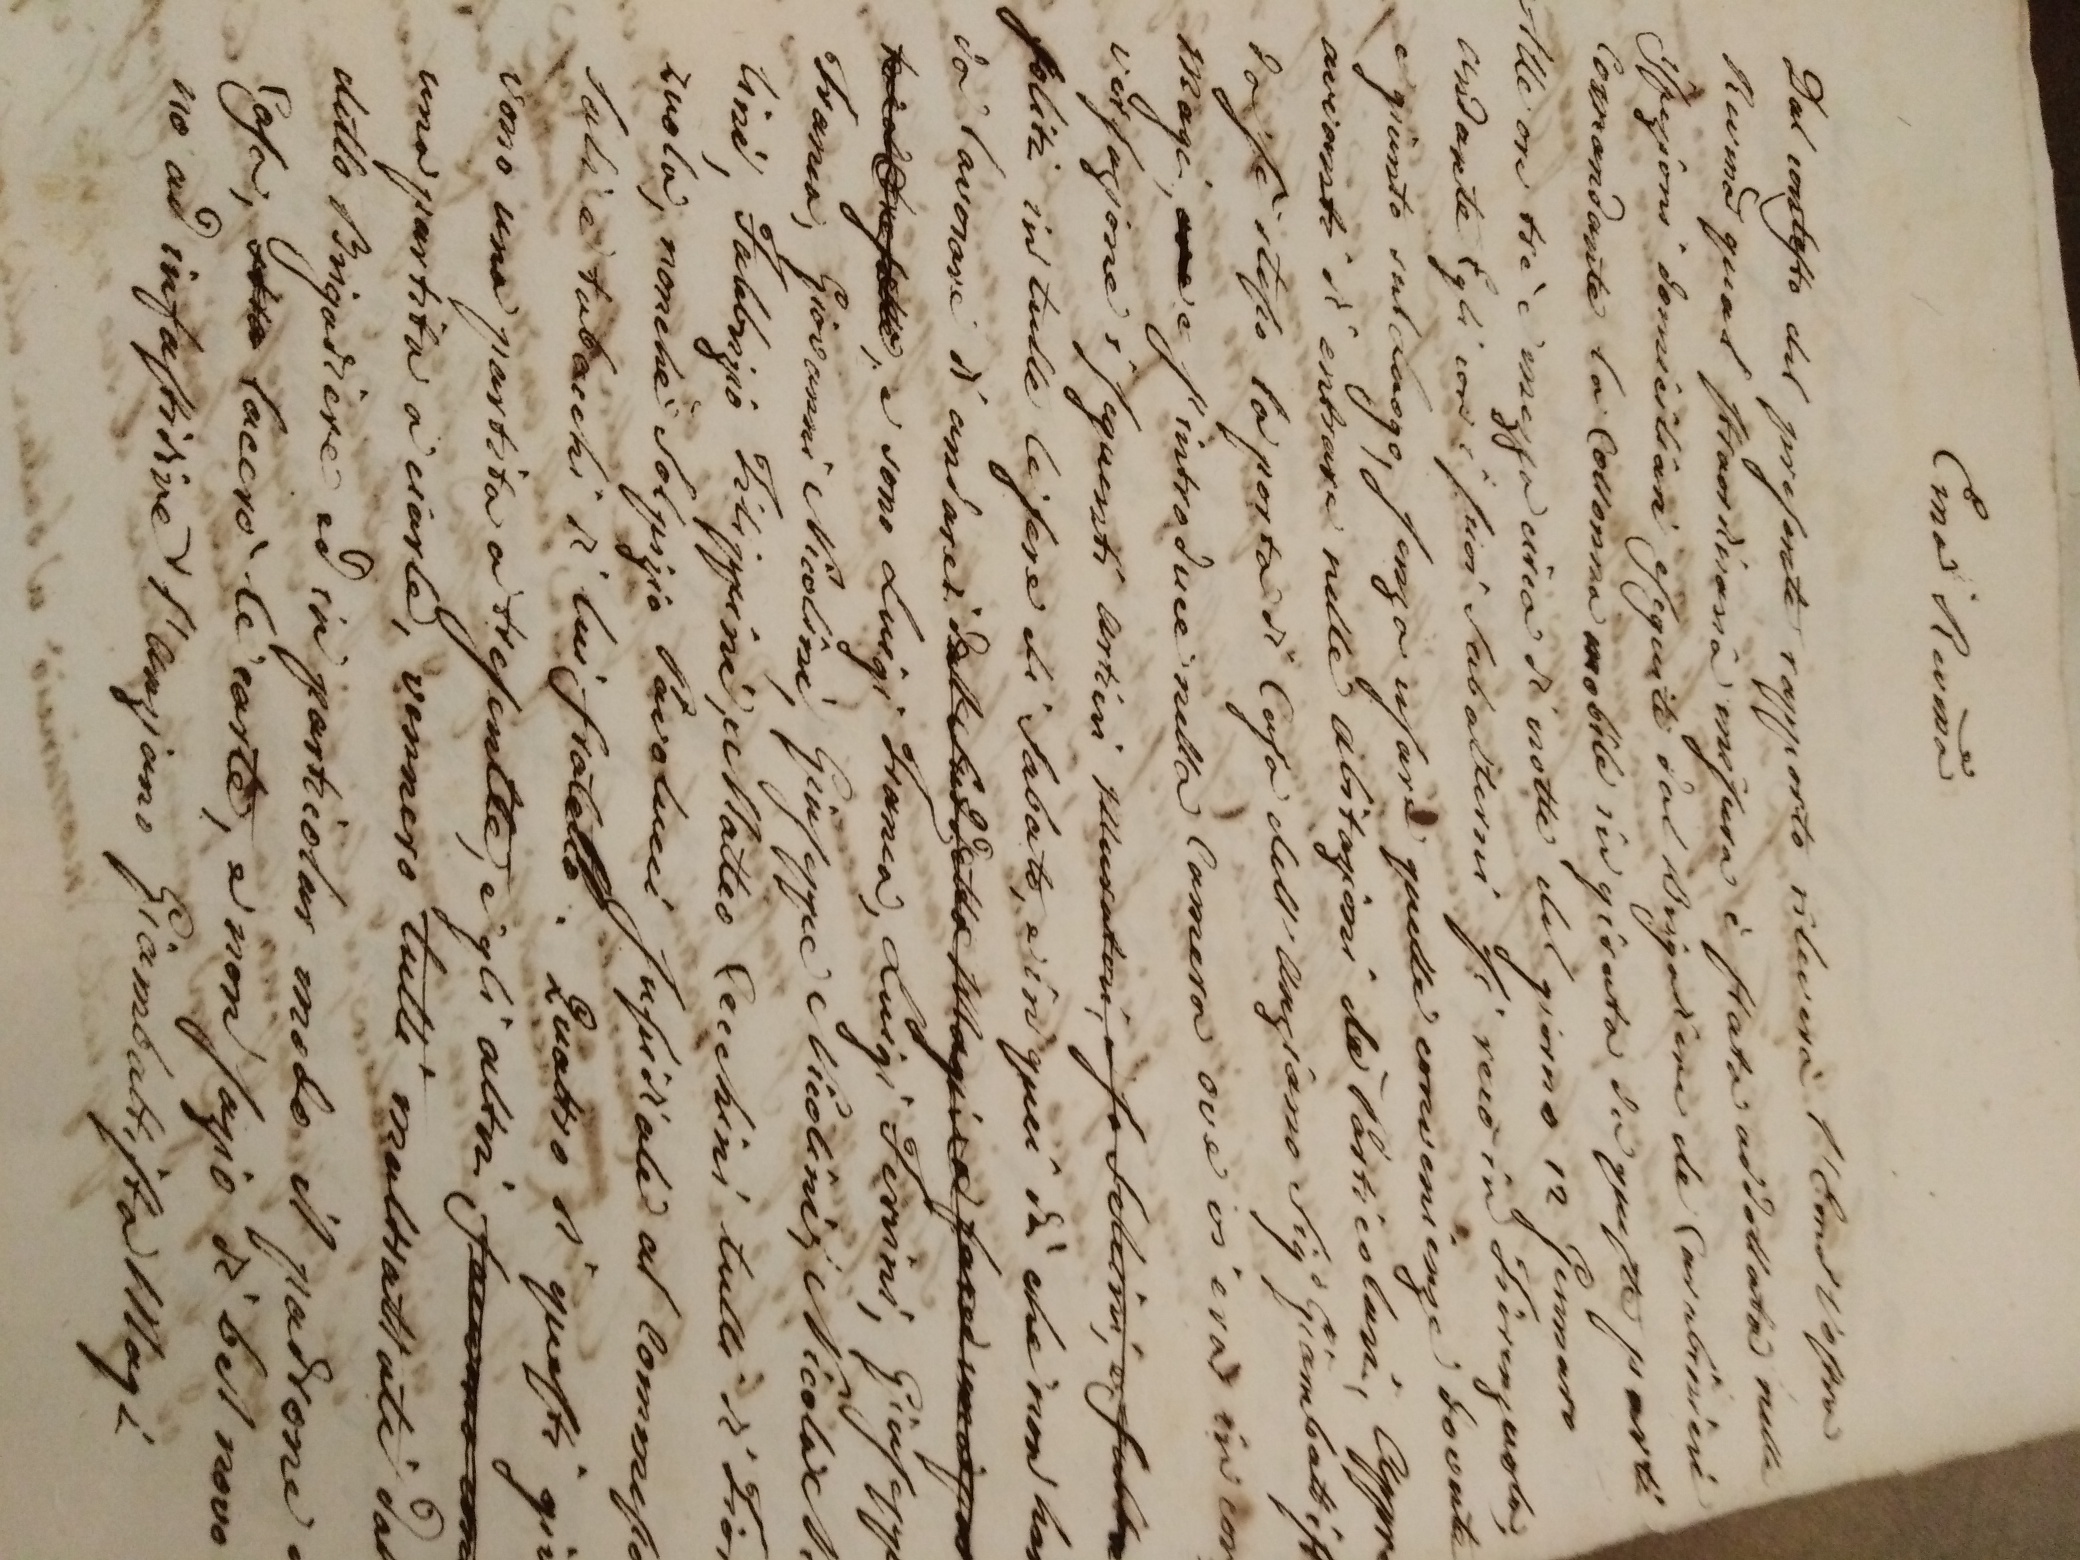 Emã Revmã
Dal contesto del presente rapporto rileverà l'Emã Vostra
Revmã qual straordinaria misura è stata addottata nelle
ispezioni domiciliari eseguite dal Brigadiere de Carabinieri
Comandante la Collonna mobile in girata da queste parti
Alle ore trè e mezza circa di notte del giorno 12 Gennaro
andante Egli con i suoi Subalterni si recò in Fiorenzuola,
e giunto sul Luogo, senza usare quelle convenienze dovute
avvanti di entrare nelle abitazioni de Particolari, Appr
da sè stesso la porta di Casa dell' Anziano Sigr Giambattist
Magi, ove e s'introduce nella Camera ove vi erano in con
versazione i seguenti Artieri Muratori,
soliti in tutte le sere di Sabato, e in quei dì che non han
da lavorare di andarei dal Suddetto Magi a fare una par
tita a tresette, e sono Luigi Franca, Luigi Fervini, Giuseppe
Franca, Giovanni Nicolini, Giuseppe Nicolini, Nicola Ni
lini, Fabbrizio Filippini, e Matteo Cecchini tutti di Fior
zuola, nonchè Solpizio Pavolucci sussidiale al Commesso
Sali e tabacchi di lui fratello. Quattro di questi gio
vono una partita a tresentte, e gli altri facevano un
una partita a ciarle, vennero tutti maltrattati dal
detto Brigadiere ed in particolar modo il padrone
Casa, lacerò le carte, e non sazio di bel novo
no ad infastidire l'anziano Giambattista Magi